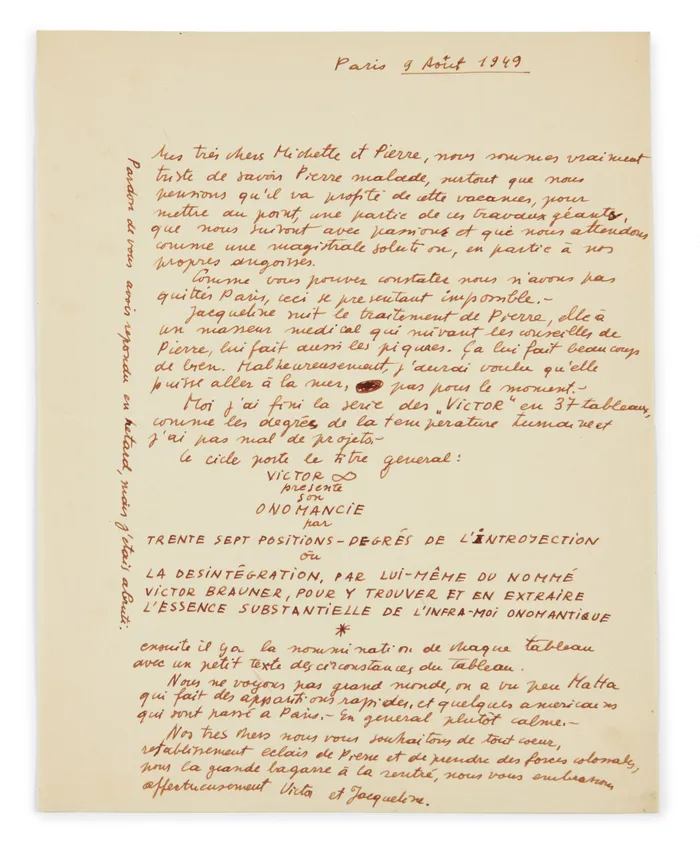 Paris 9 Août 1949
Mes très chers Michette et Pierre, nous sommes vraiment
triste de savoir Pierre malade, surtout que nous
pensions qu'il va profité de cette vacances, pour
mettre au point, une partie de ces travaux géants,
que nous suivont avec passions et que nous attendons
comme une magistrale solution, en partie à nos
propres angoisses.
Comme vous pouvez constater nous n'avons pas
quittés Paris, ceci se presentant impossible.-
Jacqueline suit le traitement de Pierre, elle à
un masseur medical qui suivant les conseilles de
Pierre, lui fait aussi les piqures. Ça lui fait beaucoups
de bien. Malheureusement, j'aurai voulu qu'elle
puisse aller à la mer, pas pour le moment.-
Moi j'ai fini la serie des „VICTOR" en 37 tableaux,
comme les degrés de la temperature humaine et
j'ai pas mal de projets.-
Le cicle porte le titre general :
VICTOR ∞
présente
son
ONOMANCIE
par
TRENTE SEPT POSITIONS - DEGRÉS DE L'INTROJECTION
ou
LA DESINTÉGRATION, PAR LUI-MÊME DU NOMMÉ
VICTOR BRAUNER, POUR Y TROUVER ET EN EXTRAIRE
L'ESSENCE SUBSTANTIELLE DE L'INFRA-MOI ONOMANTIQUE
*
ensuite il y a la nommination de chaque tableau
avec un petit texte des circonstances du tableau.
Nous ne voyons pas grand monde, on a vu peu Matta
qui fait des apparitions rapides, et quelques americains
qui sont passé a Paris.- En general plutôt calme.-
Nos tres chers nous vous souhaitons de tout coeur,
retablissement eclair de Pierre et de prendre des forces colossales,
pour la grande bagarre à la rentré, nous vous embrassons
affectueusement Victor et Jacqueline.
Pardon de vous avoir repondu en retard, mais j'étais abruti.